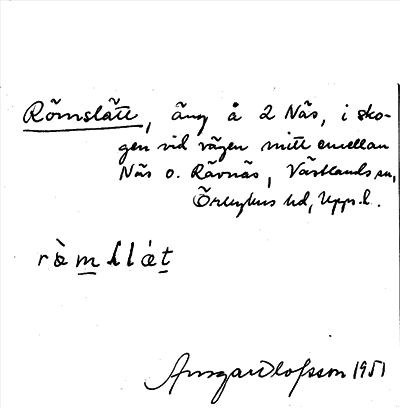 Römslätt, äng å 2 Näs, i sko-
gen vid vägen mitt emellan
Näs o. Rävnäs, Västlands sn,
Örbyhus hd, Upps. l.
Ansgar Olofsson 1951